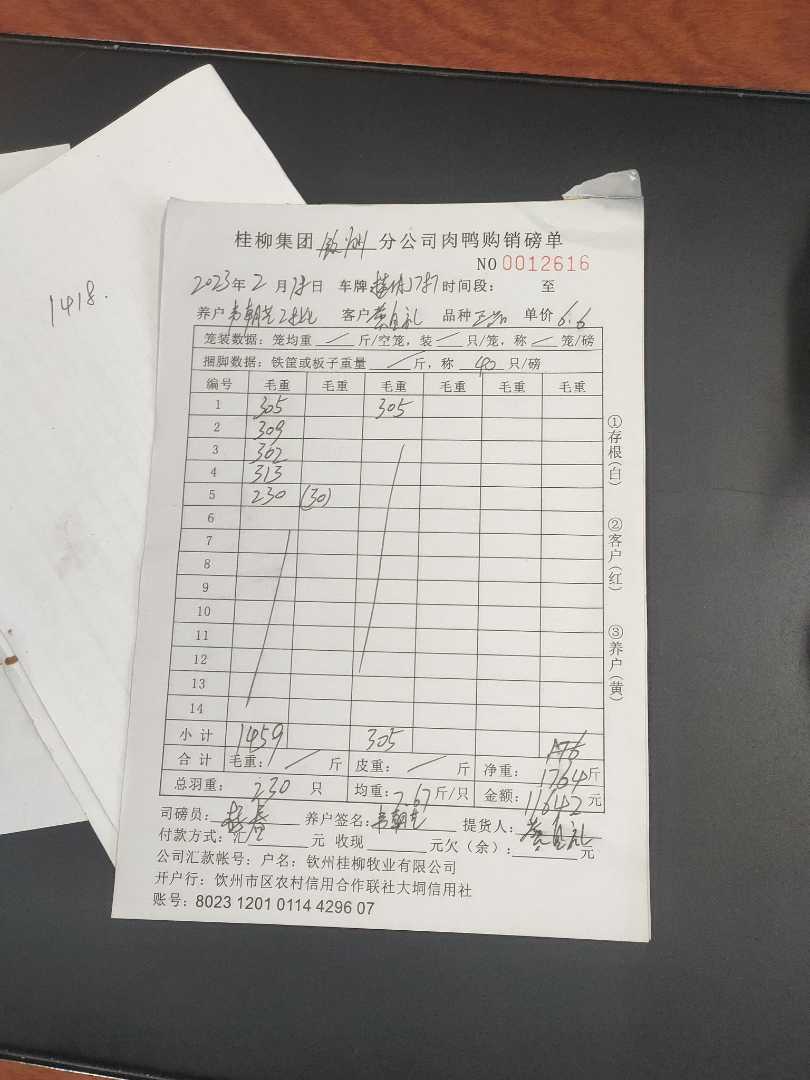 1418.
桂柳集团 钦州 分公司肉鸭购销磅单
NO 0012616
2023年 2 月 日 车牌: 时间段: 至
养户 韦朝艺 客户 品种 单价 6.6
笼装数据：笼均重 / 斤/空笼，装 / 只/笼，称 / 笼/磅
捆脚数据：铁筐或板子重量 / 斤，称 40 只/磅
编号 毛重 毛重 毛重 毛重 毛重 毛重
1 305 305
2 309
3 302
4 313
5 230 (30)
6
7
8
9
10
11
12
13
14
小计 1459 305
合计 毛重: / 斤 皮重: / 斤 净重: 1764斤
总羽重: 230 只 均重: 7.67斤/只 金额: 11642元
司磅员: 养户签名: 韦朝艺 提货人:
付款方式: 元 收现 元欠（余）: 元
公司汇款帐号：户名：钦州桂柳牧业有限公司
开户行：饮州市区农村信用合作联社大垌信用社
账号：8023 1201 0114 4296 07
①存根(白)
②客户(红)
③养户(黄)